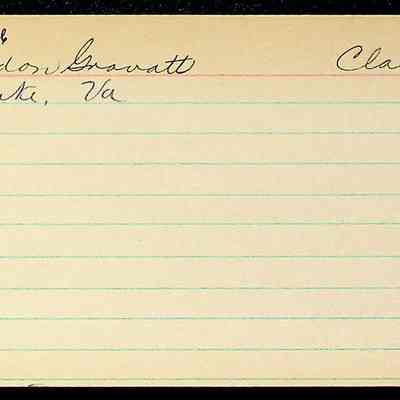 don Gravatt Cla
ke, Va